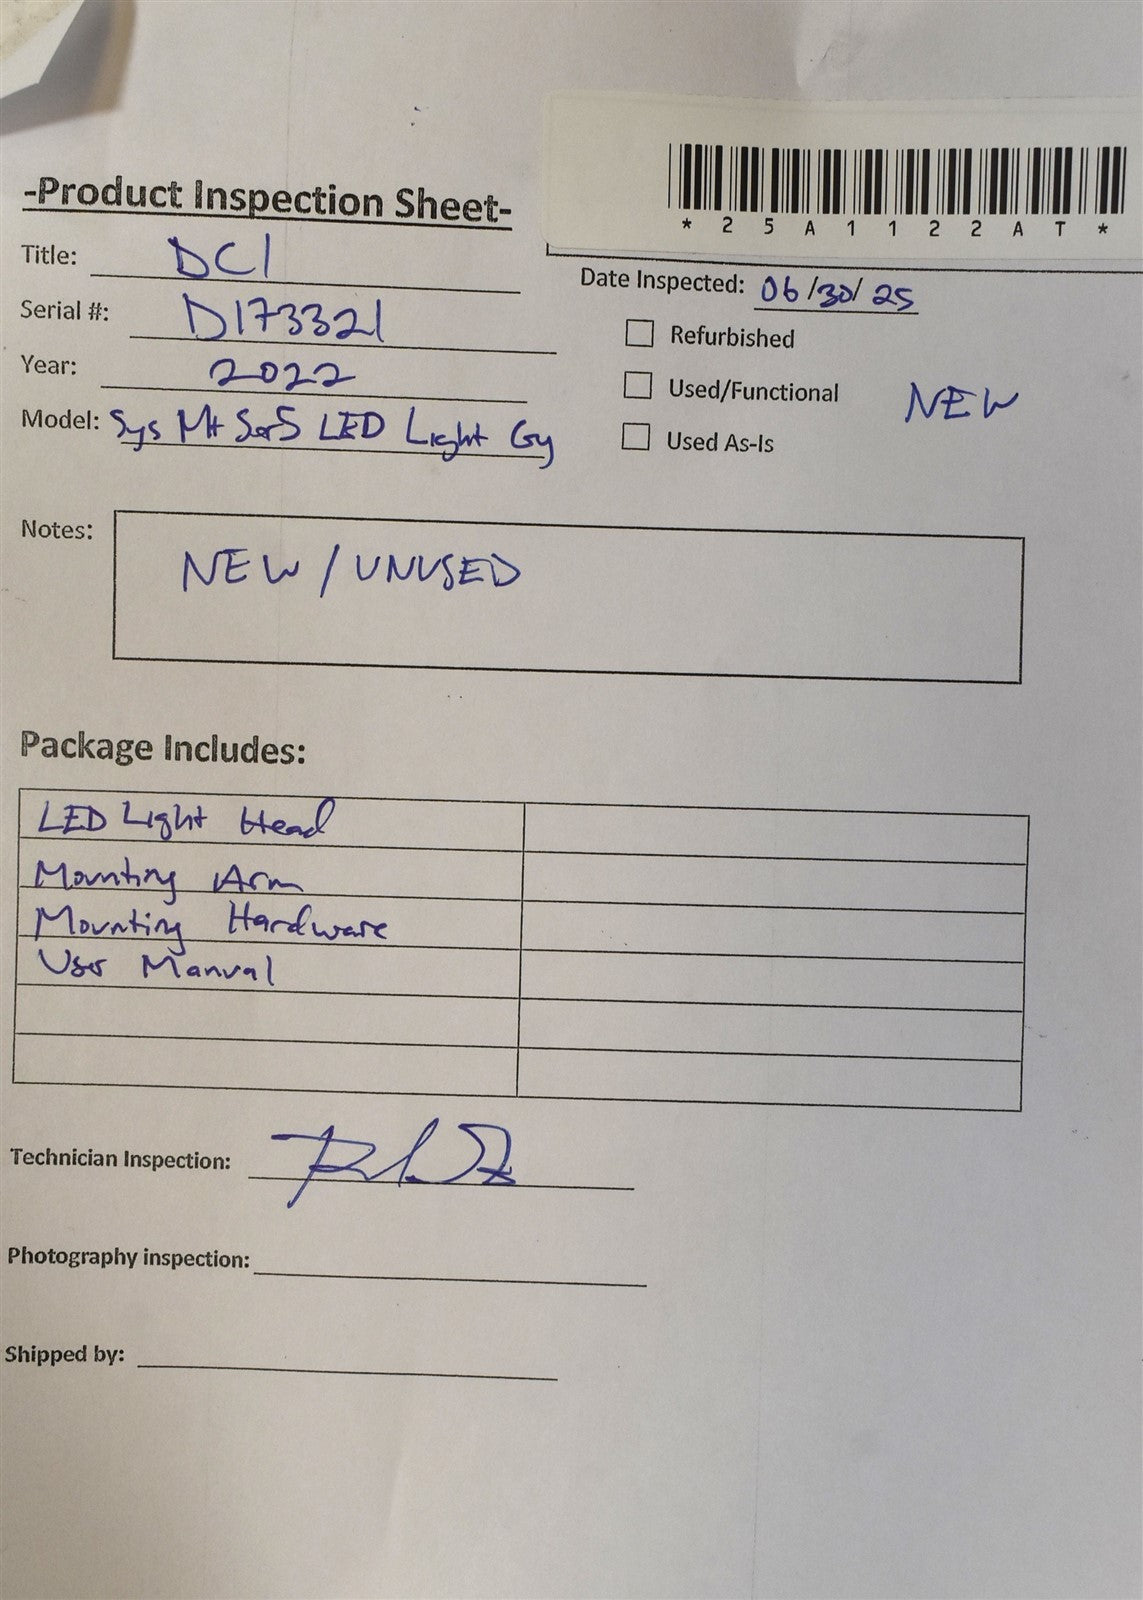 * 2 5 A 1 1 2 2 A T *
-Product Inspection Sheet-
Title: DCI
Serial #: D173321
Year: 2022
Model: Sys Mt Ser5 LED Light Gy
Date Inspected: 06/30/25
Refurbished
Used/Functional
Used As-Is
NEW
Notes: NEW / UNUSED
Package Includes:
LED Light Head
Mounting Arm
Mounting Hardware
User Manual
Technician Inspection:
Photography inspection:
Shipped by: